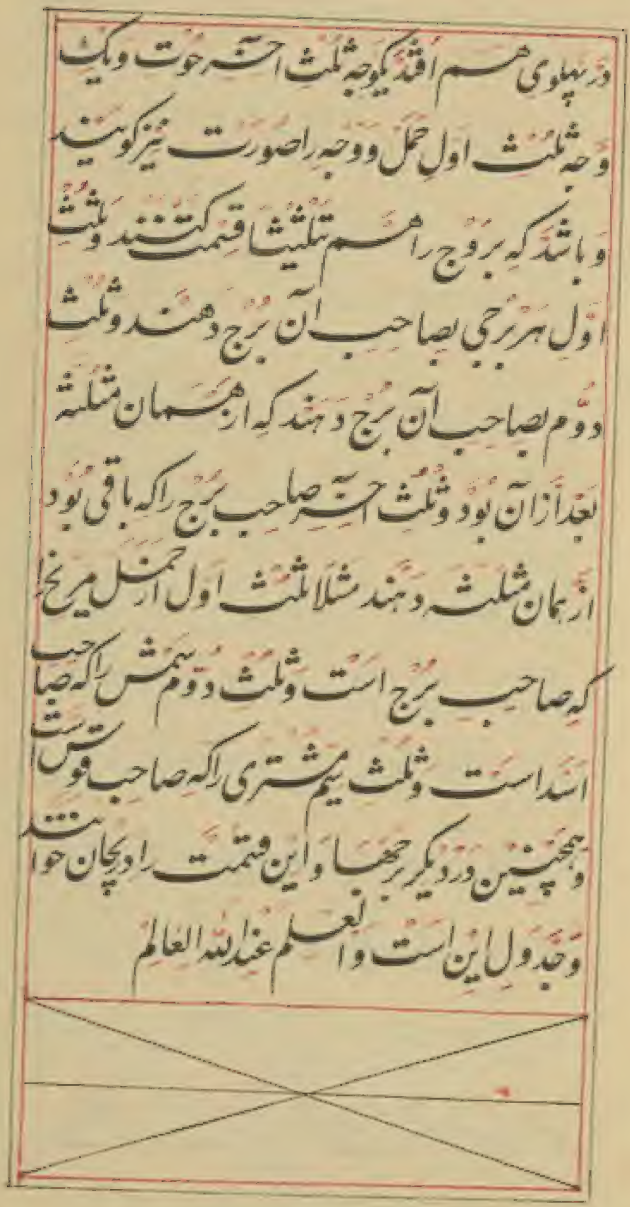 در پهلوی هم افتد یکوجه ثلث آخر حوت و یک
وجه ثلث اول حمل و وجه را صورت نیز گویند
و باشد که بروج را هم تثلیثا قسمت کنند و ثلث
اول هر برجی بصاحب آن برج دهند و ثلث
دوم بصاحب آن برج دهند که از همان مثلثه
بعد از آن بود و ثلث آخر صاحب برج را که باقی بود
از همان مثلثه دهند مثلا ثلث اول از حمل مریخ را
که صاحب برج است و ثلث دوم شمس را که صاحب
اسد است و ثلث سیم مشتری را که صاحب قوس است
و همچنین در دیگر برجها و این قسمت را دریجان خوانند
و جدول این است و العلم عند الله العالم